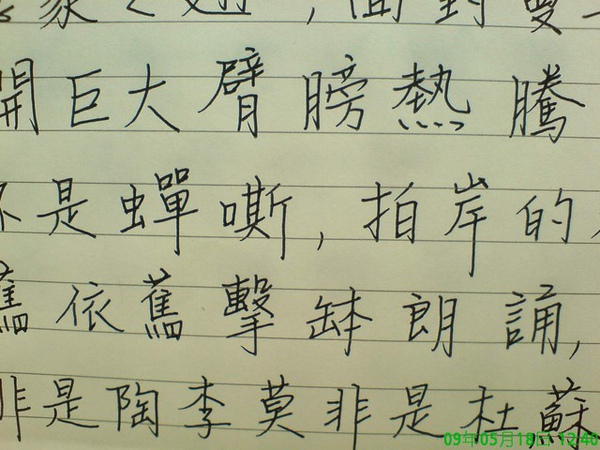 家之，面對
開巨大臂膀熱騰
不是蟬嘶，拍岸的
舊依舊擊缽朗誦，
非是陶李莫非是杜蘇
09年05月18日 12:40